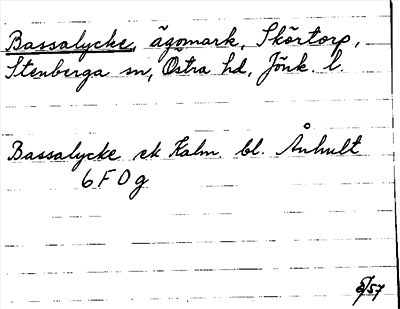 Bassalycke, ägomark, Skörtorp,
Stenberga sn, Östra hd, Jönk. l.
Bassalycke ek Kalm. bl. Ånhult
6 F 0 g
57